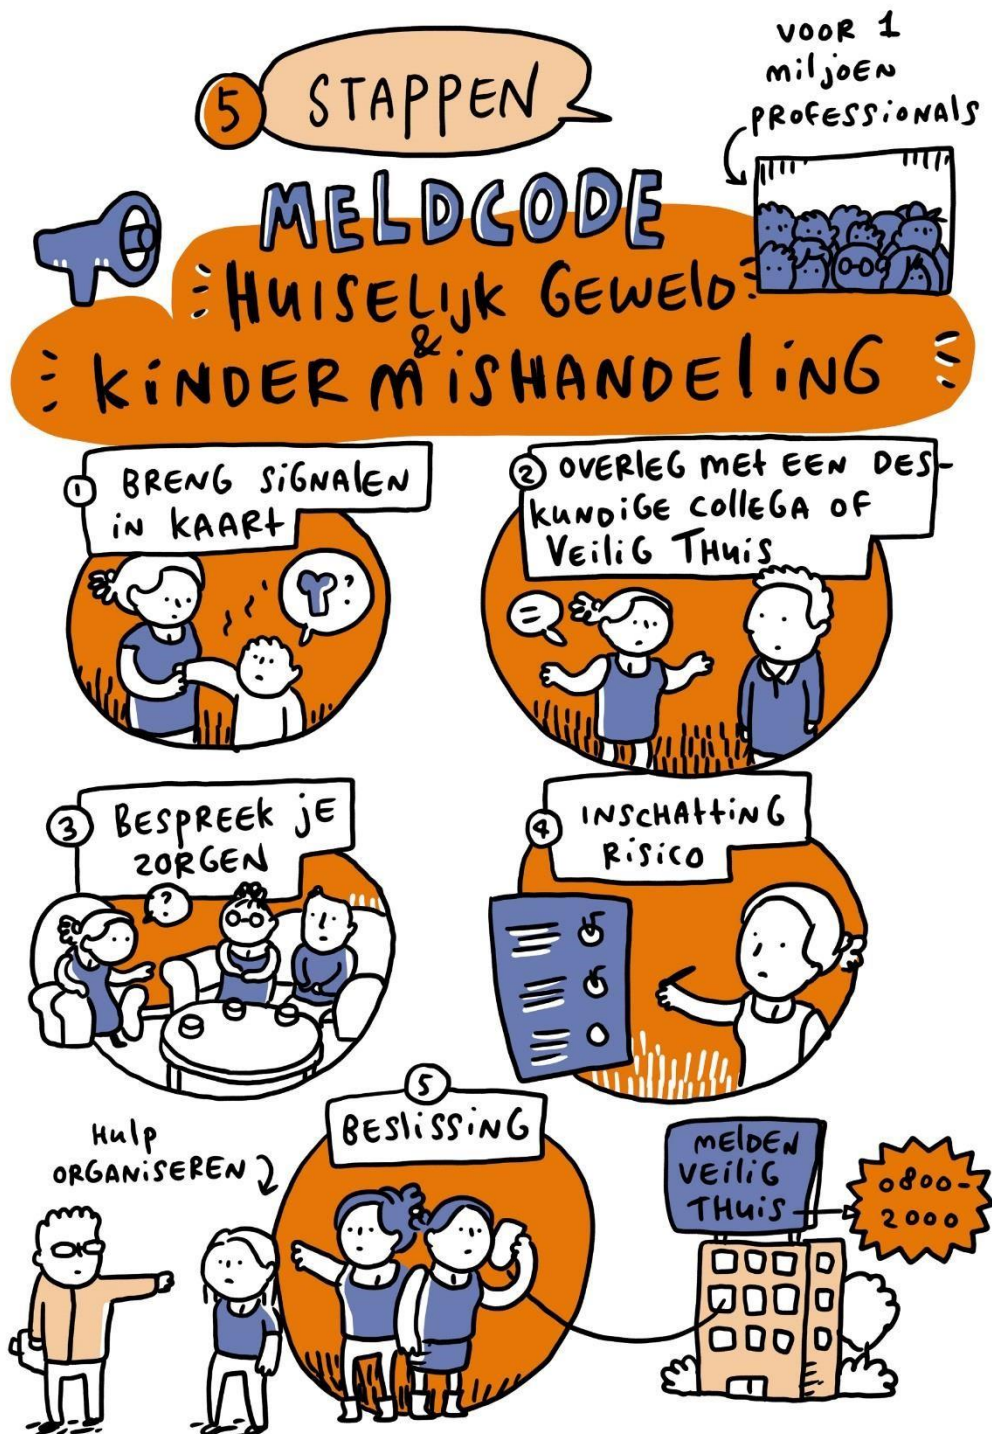 5 STAPPEN
VOOR 1
miljoEN
PROFESSIONALS
MELDCODE
HUISELIJK GEWELD
&
KINDERMISHANDELING
1 BRENG SIGNALEN
IN KAART
?
2 OVERLEG MET EEN DES-
KUNDIGE COLLEGA OF
VEILIG THUIS
3 BESPREEK JE
ZORGEN
?
4 INSCHATTING
RISICO
5
BESLISSING
Hulp
ORGANISEREN
MELDEN
VEILIG
THUIS
0800-
2000